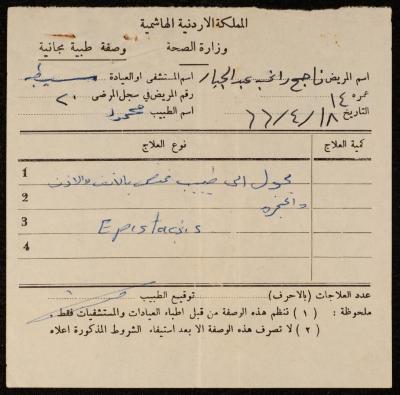 المملكة الاردنية الهاشمية
وزارة الصحة
وصفة طبية مجانية
اسم المريض ناجح راغب عبد الجبار اسم المستشفى او العيادة
عمره ١٤ رقم المريض في سجل المرضى ٢٠
التاريخ ٦٦/٤/١٨ اسم الطبيب محمود
نوع العلاج كمية العلاج
1 محول الى طبيب مختص بالانف والاذن
2 والحنجره
3 Epistaxis
4
عدد العلاجات (بالاحرف) توقيع الطبيب
ملحوظة : ( ١ ) تنظم هذه الوصفة من قبل اطباء العيادات والمستشفيات فقط .
( ٢ ) لا تصرف هذه الوصفة الا بعد استيفاء الشروط المذكورة اعلاه